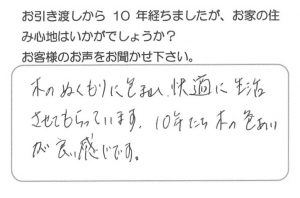 お引き渡しから 10 年経ちましたが、お家の住
み心地はいかがでしょうか？
お客様のお声をお聞かせ下さい。
木のぬくもりに包まれ、快適に生活
させてもらっています。10年たち木の色あい
が良い感じです。